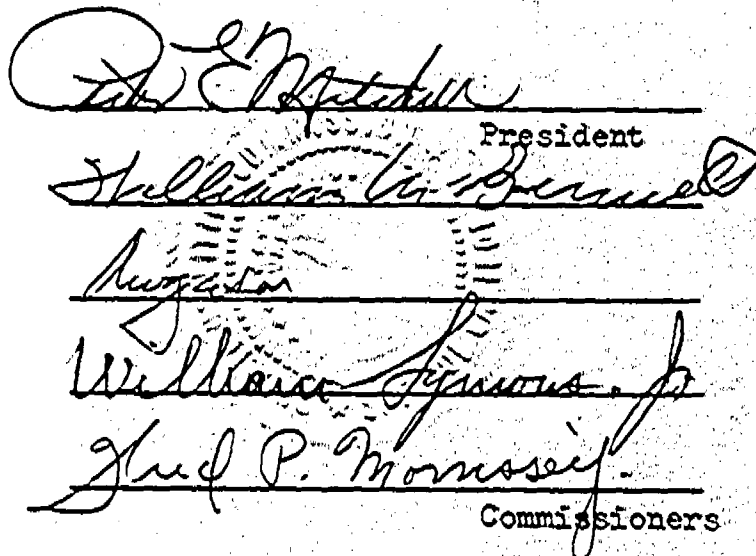 Peter E Mitchell
President
William M. Bennett
William Symons. Jr
Fred P. Morrissey.
Commissioners